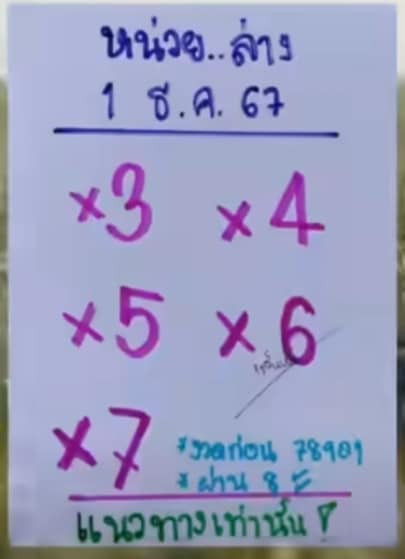 หน่วย..ล่าง
1 ธ.ค. 67
×3 ×4
×5 ×6
×7
*งวดก่อน 78901
*ผ่าน 8
แนวทางเท่านั้น !